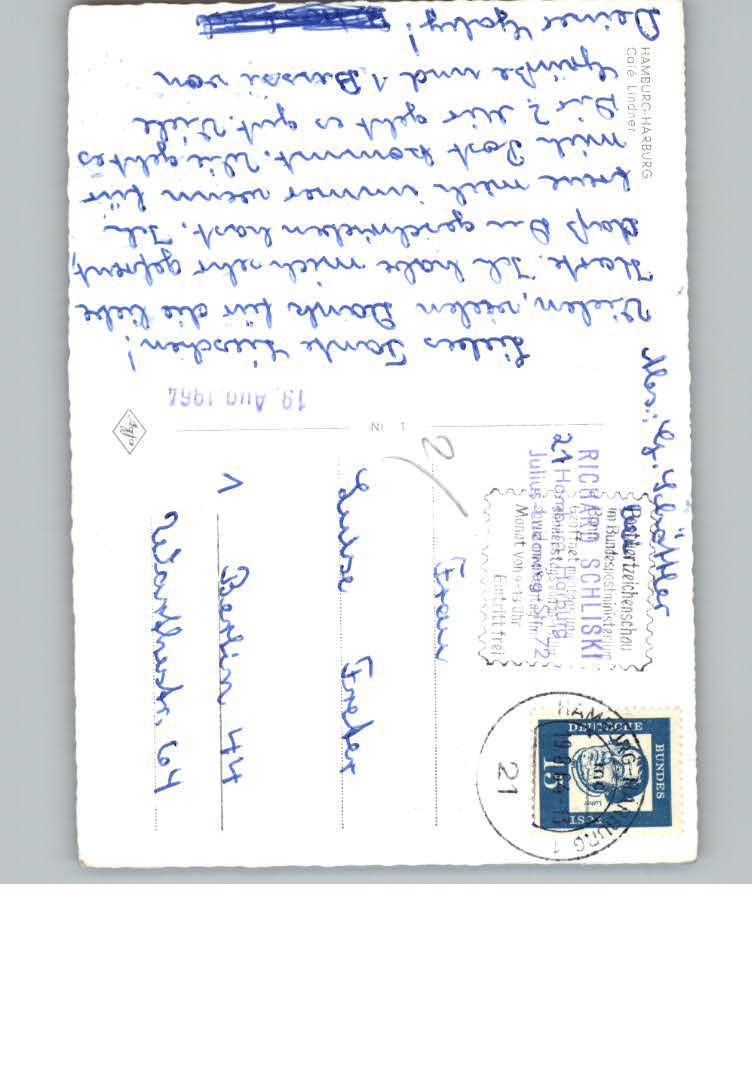 HAMBURG-HARBURG
Café Lindner
19. Aug 1964
Liebes Tante Lieschen!
Vielen, vielen Dank für die liebe
Karte. Ich habe mich sehr gefreut,
daß Du geschrieben hast. Ich
freue mich immer wenn für
mich Post kommt. Wie geht es
Dir? Mir geht es gut. Viele
Grüße und 1 Bussi von
Deiner Gaby!
Nr. 1
Agfa
2
RICHARD SCHLISKI
21 Hamburg-Harburg
Julius-Ludowieg-Str. 72
Postwertzeichenschau
im Bundespostministerium
Bonn
Monat von 9-13 Uhr
Eintritt frei
HAMBURG-HARBURG 1
19.8.64
21
DEUTSCHE
BUNDES
POST
15
Luther
Frau
Luise
1 Berlin 44